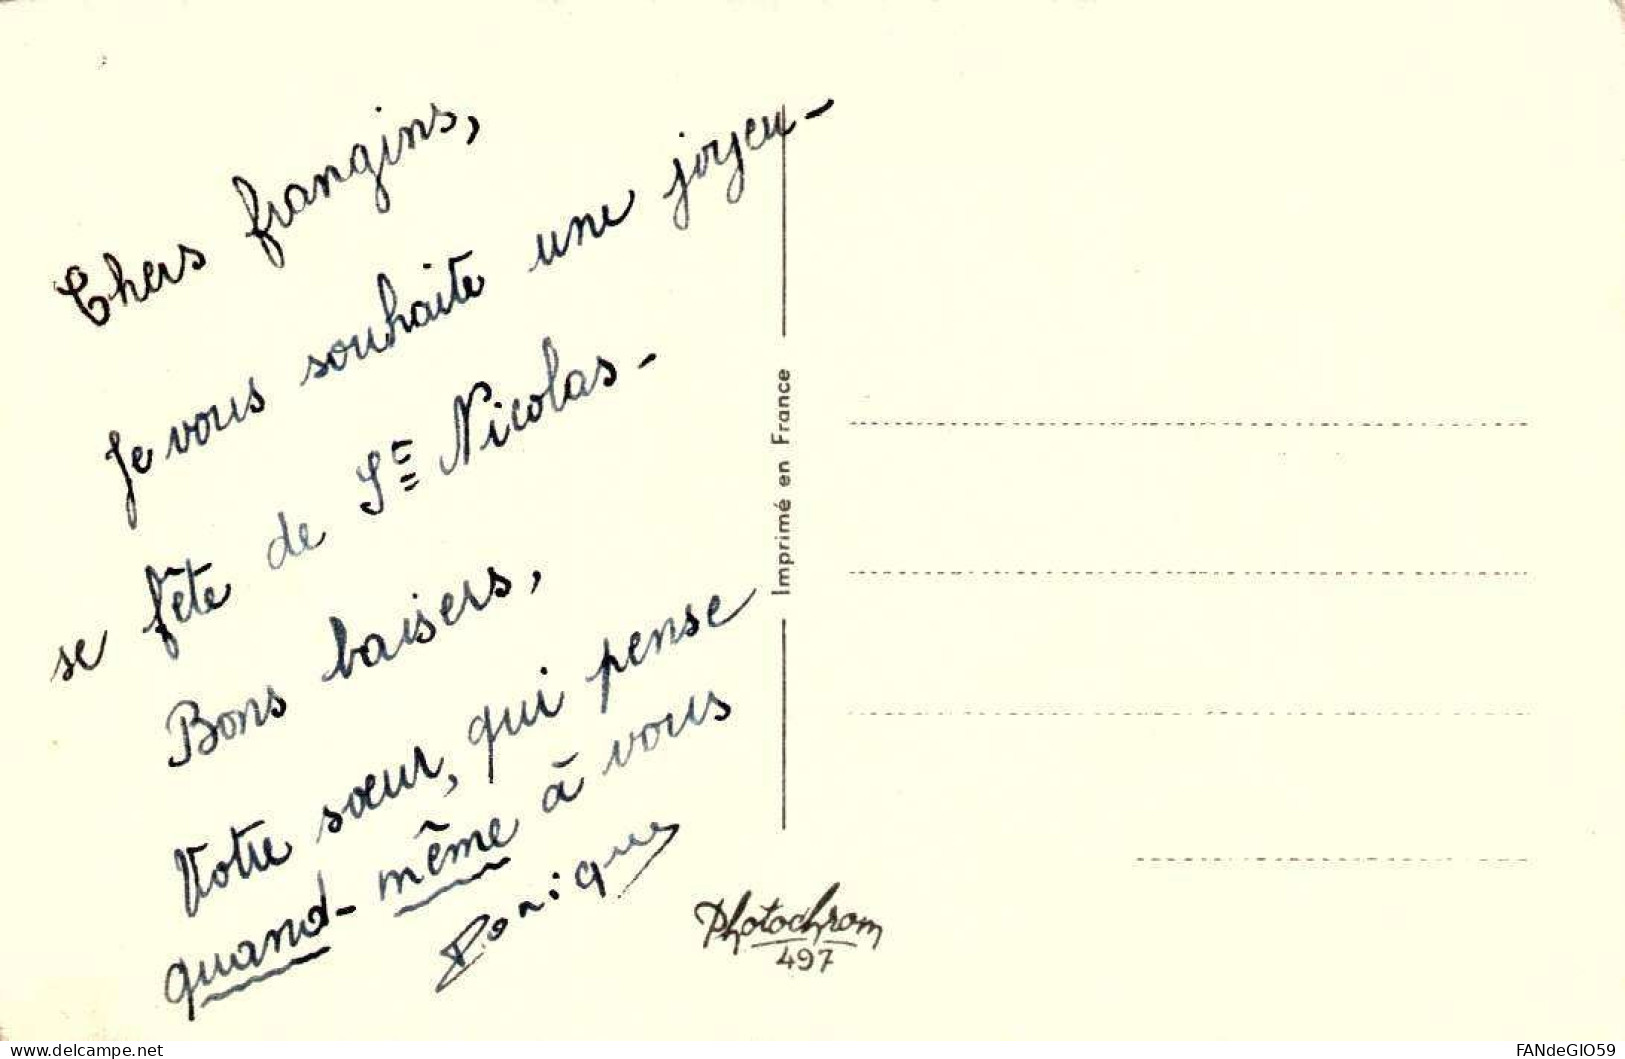 Chers frangins,
Je vous souhaite une joyeu-
se fête de Ste Nicolas-
Bons baisers,
Votre sœur, qui pense
quand-même à vous
Imprimé en France
Photochrom
497
www.delcampe.net
FANdeGIO59